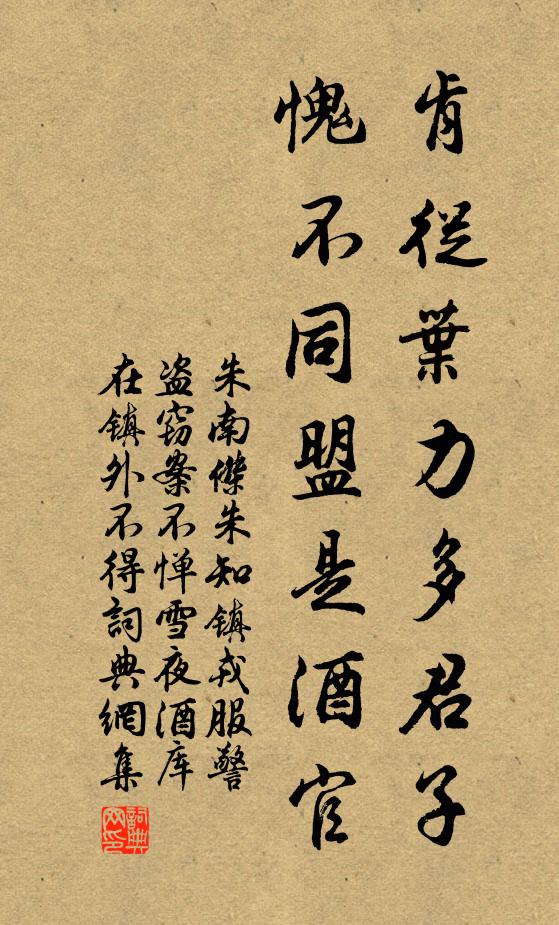 肯從葉力多君子
愧不同盟是酒官
朱南傑朱知镇戎服警
盗窃案不惮雪夜酒库
在镇外不得詞典網集
詞典网印